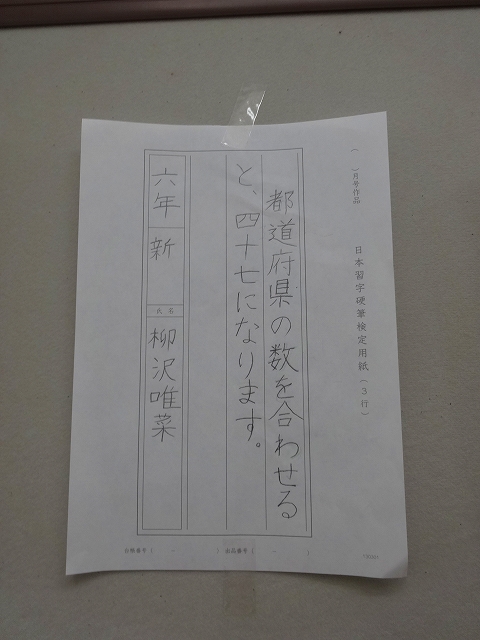 ( )月号作品
日本習字硬筆検定用紙(3行)
都道府県の数を合わせる
と、四十七になります。
六年 新
氏名
柳沢唯菜
会務番号( - ) 出品番号( - )